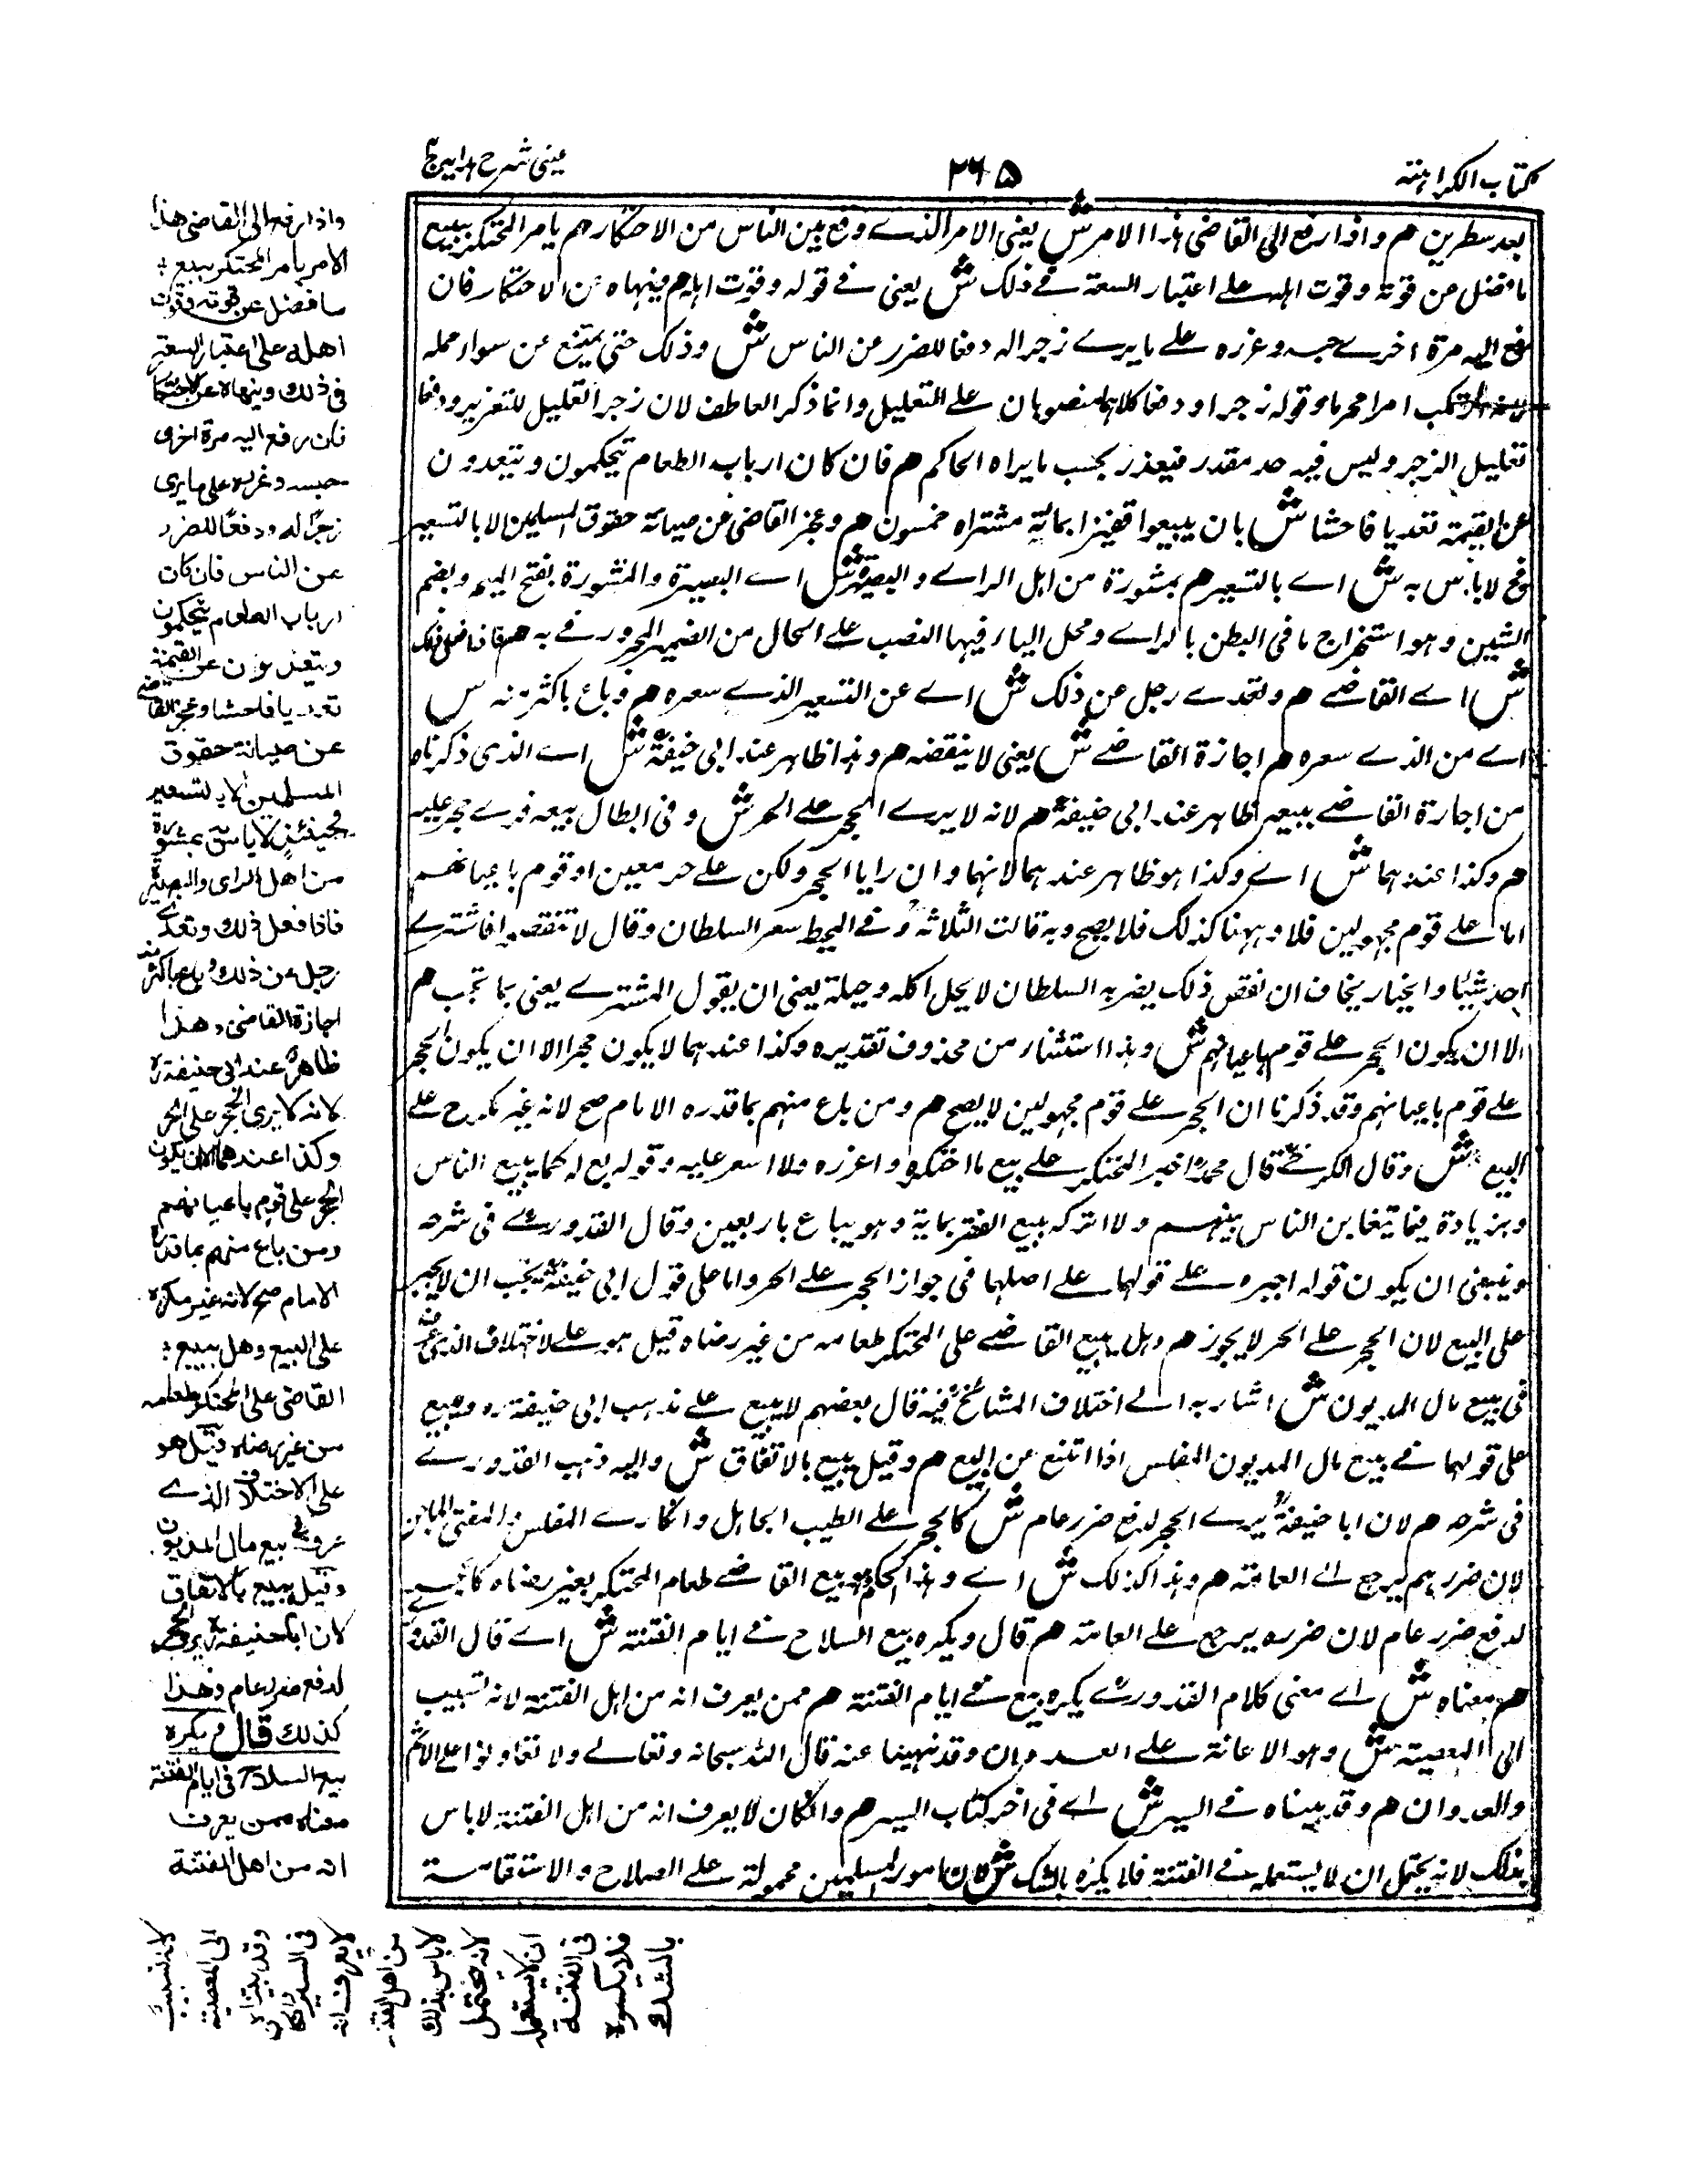 كتاب الكراهته
٢٦٥
عینی شرح ہدایہ ج
بعد سطرین هم واذا رفع الی القاضی ہذا الامر ش یعنی الامر الذے وقع بین الناس من الاحتکار هم یامر المحتکر ببیع
ما فضل من قوته وقوت اہله علے اعتبار السعة فے ذلک ش یعنی فے قوله وقوت اہله هم وینہاہ عن الاحتکار فان
رفع الیه مرة اخرے حبسه وعزره علے ما یرے زجرا له ودفعا للضرر عن الناس ش وذلک حتی یمتنع عن سوء عمله
لانه ارتکب امرا محرما وقوله زجرا ودفعا کلاہما منصوبان علے التعلیل وانما ذکر العاطف لان زجرا تعلیل للتعزیر ودفعا
تعلیل الزجر ولیس فیه حد مقدر فیعذر بحسب ما یراہ الحاکم هم فان کان ارباب الطعام یتحکمون ویتعدون
عن القیمة تعدیا فاحشا ش بان یبیعوا قفیزا بمائة مشتراہ خمسون هم وعجز القاضی عن صیانة حقوق المسلمین الا بالتسعیر
فح لا باس به ش اے بالتسعیر هم بمشورة من اہل الراے والبصیرة ش اے البصیرة والمشورة بفتح المیم وبضم
الشین وہو استخراج ما فی البطن بالراے ومحل الیاء فیہا النصب علے الحال من الضمیر المجرور فے به هم فاذا فعل ذلک
ش اے القاضے هم وتعدے رجل عن ذلک ش اے عن التسعیر الذے سعره هم وباع باکثر منه ش
اے من الذے سعره هم اجازة القاضے ش یعنی لا ینقضه هم وہذا ظاہر عند ابی حنیفة ش اے الذی ذکرناہ
من اجازة القاضے ببیعه ظاہر عند ابی حنیفة هم لانه لا یرے الحجر علے الحر ش وفی ابطال بیعه نوع حجر علیه
هم وکذا عندہما ش اے وکذا ہو ظاہر عندہما لانہما وان رایا الحجر ولکن علے حر معین او قوم باعیانہم
اما علے قوم مجہولین فلا وہہنا کذلک فلا یصح وبه قالت الثلاثة وفے المحیط سعر السلطان وقال لا تنقصوا فاشترے
احد شیئا والخباز یخاف ان نقص ذلک یضربه السلطان لا یحل اکله وحیلة یعنی ان یقول المشترے بعنی بما تحب هم
الا ان یکون الحجر علے قوم باعیانہم ش وہذا استثناء من محذوف تقدیره وکذا عندہما لا یکون حجرا الا ان یکون الحجر
علے قوم باعیانہم وقد ذکرنا ان الحجر علے قوم مجہولین لا یصح هم ومن باع منہم بما قدره الامام صح لانه غیر مکره علے
البیع ش وقال الکرخے قال محمد اجبر المحتکر علے بیع ما احتکره واعزره ولا اسعر علیه وقوله بع له کما یبیع الناس
وبزیادة فیما یتغابن الناس بینہم ولا اترکه یبیع القفیز بمایة وہو یباع باربعین وقال القدورے فی شرحه
وینبغی ان یکون قوله اجبره علے قولہما علے اصلہما فی جواز الحجر علے الحر واما علی قول ابی حنیفة یجب ان لا یجبر
علی البیع لان الحجر علے الحر لا یجوز هم وہل یبیع القاضے علی المحتکر طعامه من غیر رضاہ قیل ہو علے الاختلاف الذی عرف
فی بیع مال المدیون ش اشار به الے اختلاف المشائخ فیه قال بعضہم لا یبیع علے مذہب ابی حنیفة رہ ویبیع
علی قولہما فے بیع مال المدیون المفلس اذا امتنع عن البیع هم وقیل یبیع بالاتفاق ش والیه ذہب القدورے
فی شرحه هم لان ابا حنیفة یرے الحجر لدفع ضرر عام ش کالحجر علے الطبیب الجاہل والمکارے المفلس والمفتی الماجن
لان ضررہم یرجع الے العامة هم وہذا کذلک ش اے وہذا الحکم وہو بیع القاضے طعام المحتکر بغیر رضاہ کائن
لدفع ضرر عام لان ضرره یرجع علے العامة هم قال ویکره بیع السلاح فے ایام الفتنة ش اے قال القدورے
هم معناہ ش اے معنی کلام القدورے یکره بیع فے ایام الفتنة هم ممن یعرف انه من اہل الفتنة لانه تسبیب
الی المعصیة ش وہو الاعانة علے العدوان وقد نہینا عنه قال اللہ سبحانه وتعالے ولا تعاونوا علے الاثم
والعدوان هم وقد بیناہ فے السیر ش اے فی اخر کتاب السیر هم وان کان لا یعرف انه من اہل الفتنة لا باس
بذلک لانه یحتمل ان لا یستعمله فے الفتنة فلا یکره بالشک ش لان امور المسلمین محمولة علے الصلاح والاستقامة
واذا رفع الى القاضى هذا
الامر يامر المحتكر ببيع
ما فضل عن قوته وقوت
اهله على اعتبار السعة
فى ذلك وينهاه عن الاحتكار
فان رفع اليه مرة اخرى
حبسه وعزره على ما يرى
زجرًا له ودفعًا للضرر
عن الناس فان كان
ارباب الطعام يتحكمون
ويتعدون عن القيمة
تعديا فاحشا وعجز القاضى
عن صيانة حقوق
المسلمين الا بالتسعير
فحينئذٍ لا باس به بمشورة
من اهل الراى والبصيرة
فاذا فعل ذلك وتعدى
رجل عن ذلك وباع باكثر منه
اجازة القاضى وهذا
ظاهر عند ابى حنيفة
لانه لا يرى الحجر على الحر
وكذا عندهما الا ان يكون
الحجر على قوم باعيانهم
ومن باع منهم بما قدره
الامام صح لانه غير مكره
على البيع وهل يبيع
القاضى على المحتكر طعامه
من غير رضاه قيل هو
على الاختلاف الذے
عرف فى بيع مال المديون
وقيل يبيع بالاتفاق
لان ابا حنيفة يرى الحجر
لدفع ضرر عام وهذا
كذلك قال ويكره
بيع السلاح فى ايام الفتنة
معناه ممن يعرف
انه من اهل الفتنة
لانه تسبيب
الى المعصية
وقد بيناه
فى السير وان كان
لا يعرف انه
من اهل الفتنة
لا باس بذلك
لانه يحتمل
ان لا يستعمله
فى الفتنة
فلا يكره
بالشك